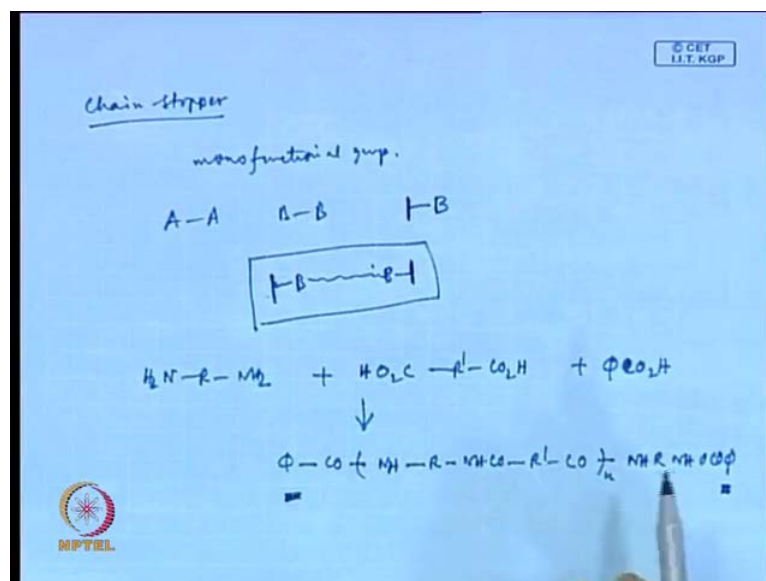 © CET
I.I.T. KGP
Chain stopper
monofunctional grup.
A-A B-B ⊢B
⊢B~~~B⊣
H₂N-R-NH₂ + HO₂C-R'-CO₂H + ΦCO₂H
↓
Φ-CO(NH-R-NHCO-R'-CO)ₙ NHRNHOCOΦ
NPTEL